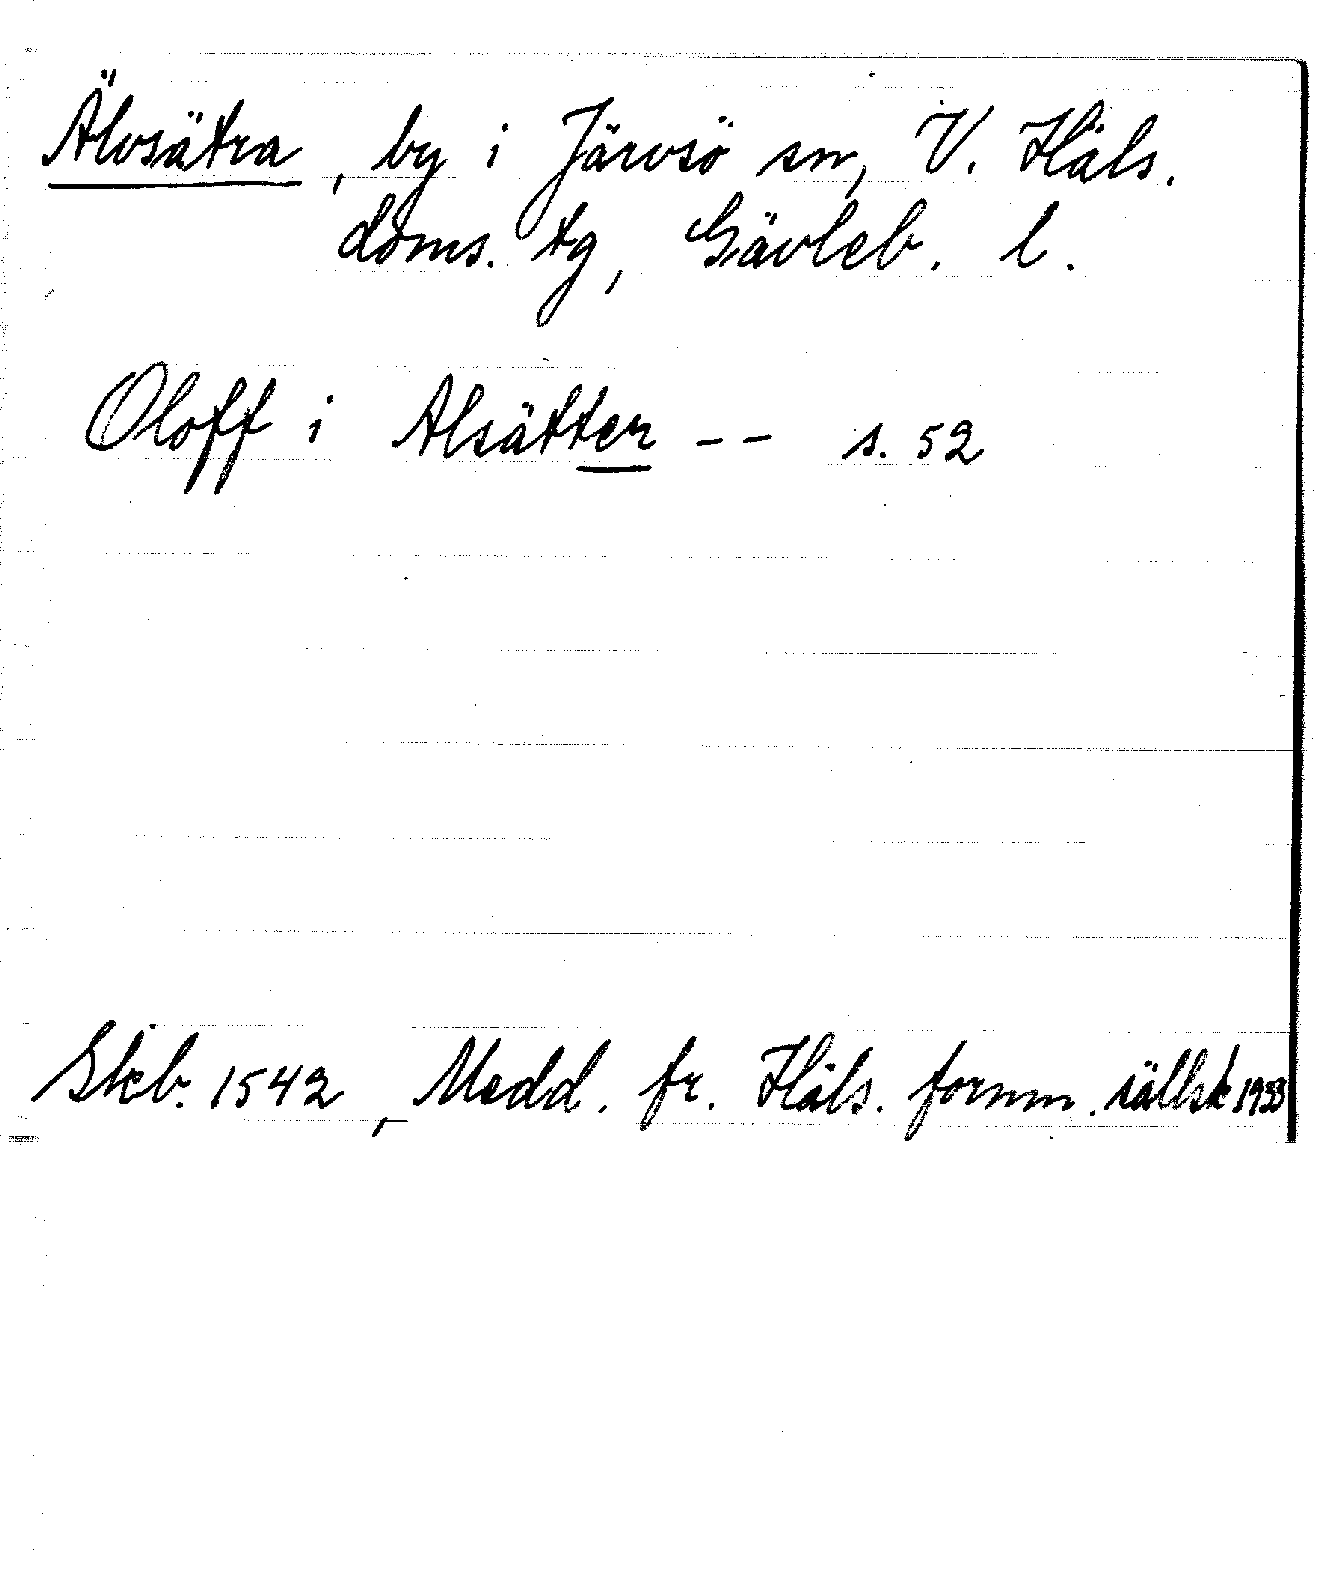 Älvsätra, by i Järvsö sn, V. Häls.
doms. tg, Gävleb. l.
Oloff i Alsätter -- s. 52
Skb. 1542, Medd. fr. Häls. fornm. sällsk 1933